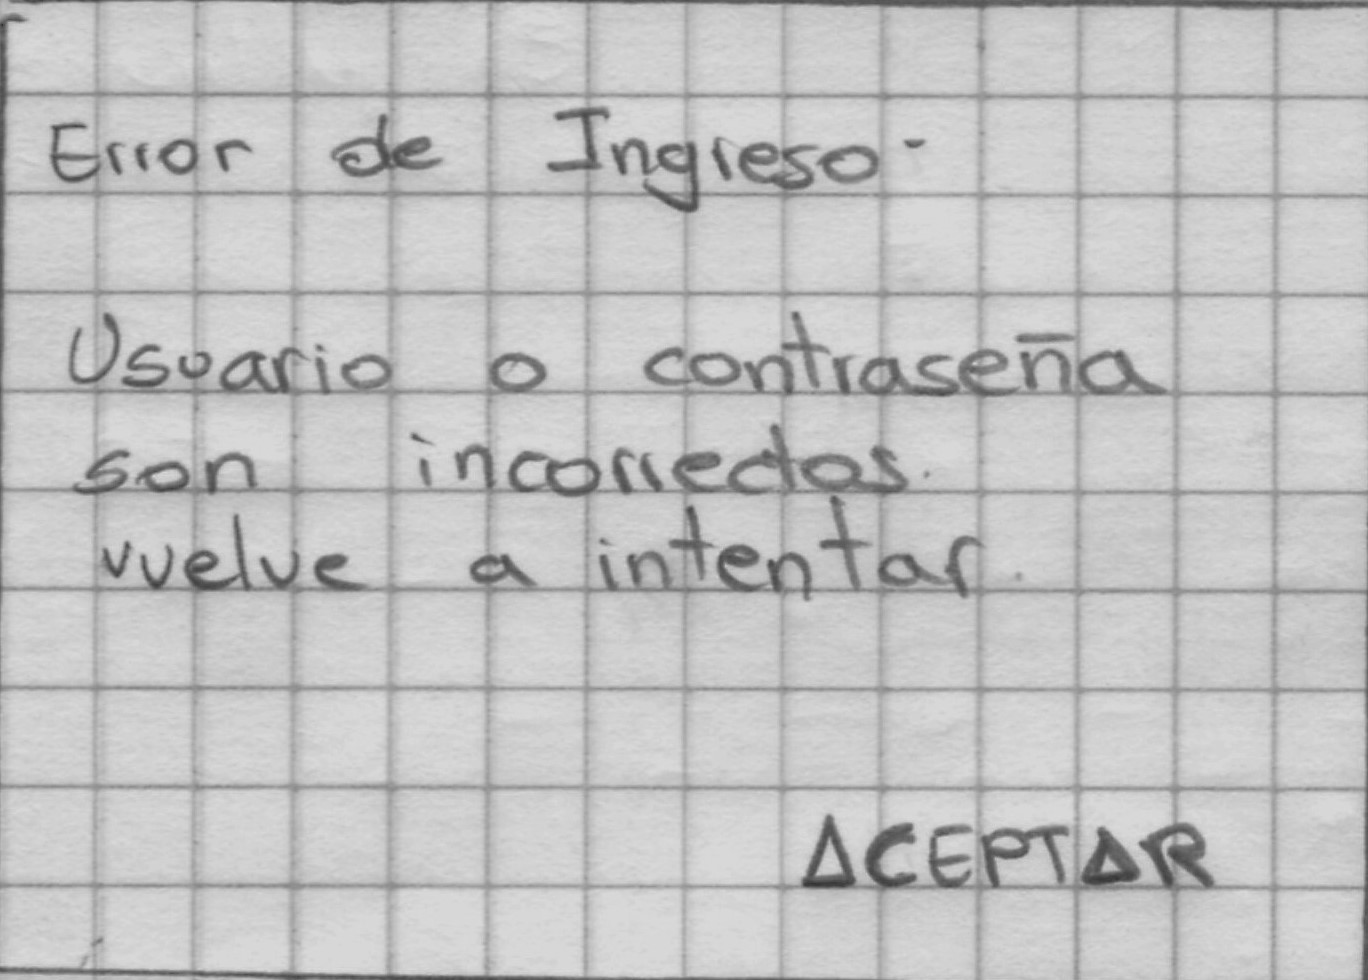 Error de Ingreso.
Usuario o contraseña
son incorrectos.
vuelve a intentar.
ACEPTAR